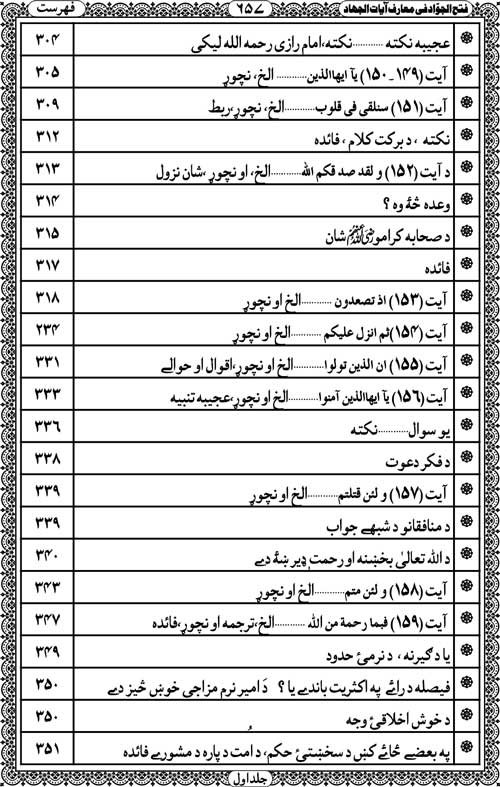 فتح الجوّاد فی معارف آیات الجهاد ۶۵۷ فهرست
عجیبه نکته ............ نکته،امام رازی رحمه الله لیکی ۳۰۴
آیت (۱۴۹ - ۱۵۰) یآ ایهاالذین............ الخ، نچوړ ۳۰۵
آیت (۱۵۱) سنلقی فی قلوب............الخ، نچوړ،ربط ۳۰۹
نکته ، د برکت کلام ، فائده ۳۱۲
د آیت (۱۵۲) و لقد صد قکم الله............الخ، او نچوړ ،شان نزول ۳۱۳
وعده څۀ وه ؟ ۳۱۴
د صحابه کرامو شان ۳۱۵
فائده ۳۱۷
آیت (۱۵۳) اذ تصعدون ............الخ او نچوړ ۳۱۸
آیت (۱۵۴)ثم انزل علیکم ............الخ او نچوړ ۲۳۴
آیت (۱۵۵) ان الذین تولوا............الخ او نچوړ،اقوال او حوالے ۳۳۱
آیت (۱۵۶) یآ ایهاالذین آمنوا............الخ او نچوړ،عجیبه تنبیه ۳۳۳
یو سوال............نکته ۳۳۶
د فکر دعوت ۳۳۸
آیت (۱۵۷) و لئن قتلتم............الخ او نچوړ ۳۳۹
د منافقانو د شبهے جواب ۳۳۹
د الله تعالیٰ بخښنه او رحمت ډیر ښۀ دے ۳۴۰
آیت (۱۵۸) و لئن متم............الخ او نچوړ ۳۴۳
آیت (۱۵۹) فبما رحمة من الله ............الخ،ترجمه او نچوړ،فائده ۳۴۷
یاد ګیرنه ، د نرمئ حدود ۳۴۹
فیصله د رائے په اکثریت باندے یا ؟ دَ امیر نرم مزاجی خوښ څیز دے ۳۵۰
د خوش اخلاقئ وجه ۳۵۰
په بعضے ځائے کښ د سختئ حکم، د امت د پاره د مشورے فائده ۳۵۱
جلد اول